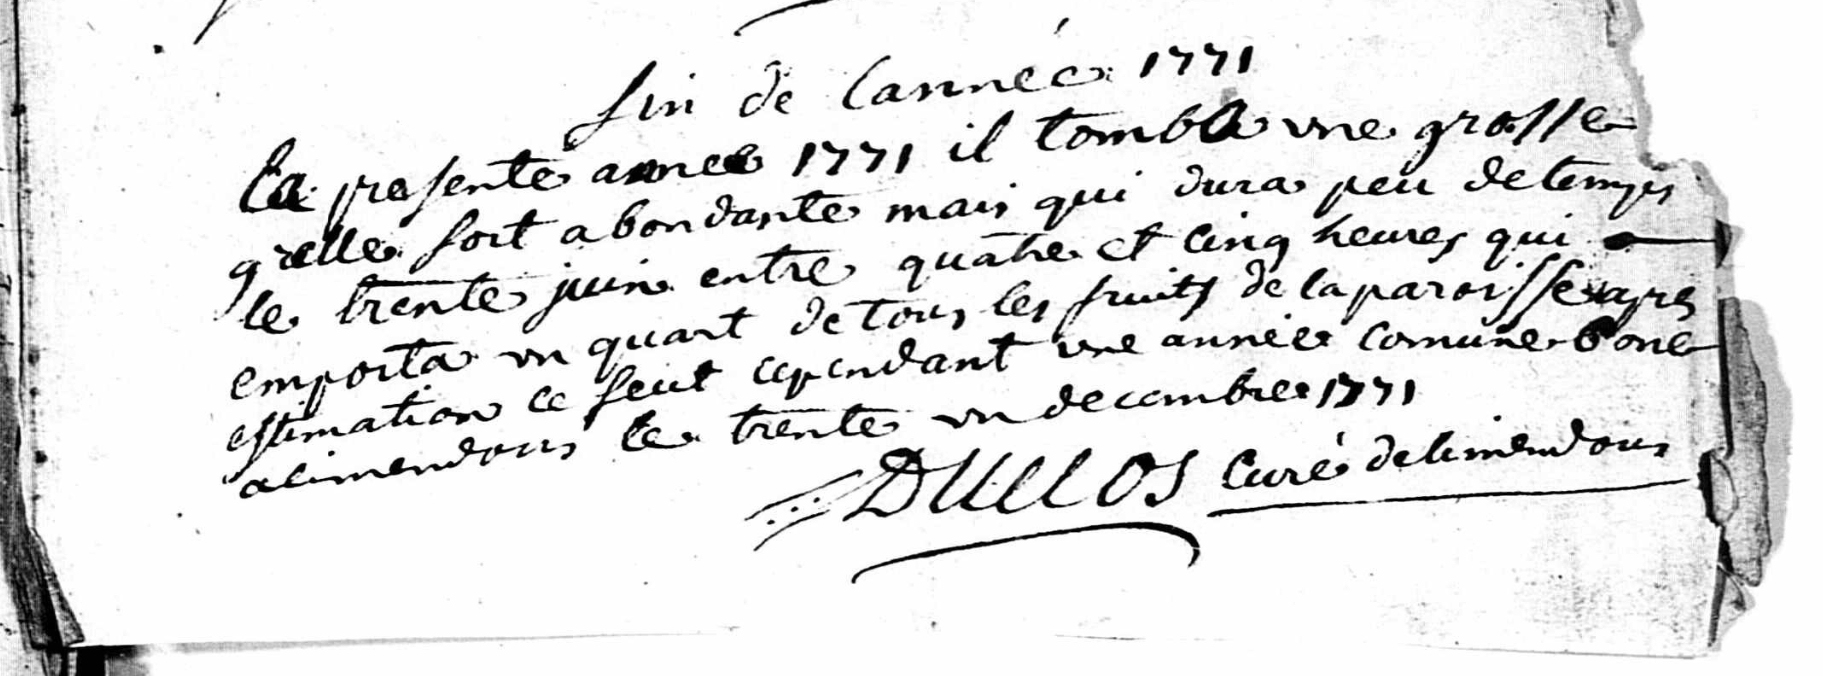 fin de lannée 1771
La presente annee 1771 il tomba une grosse
grelle fort abondante mais qui dura peu de temps
le trente juin entre quatre et cinq heures qui
emporta un quart de tous les fruits de la paroisse apres
estimation ce feut cependant une année comune bone
a limendous le trente un decembre 1771
DUCLOS Curé de limendous